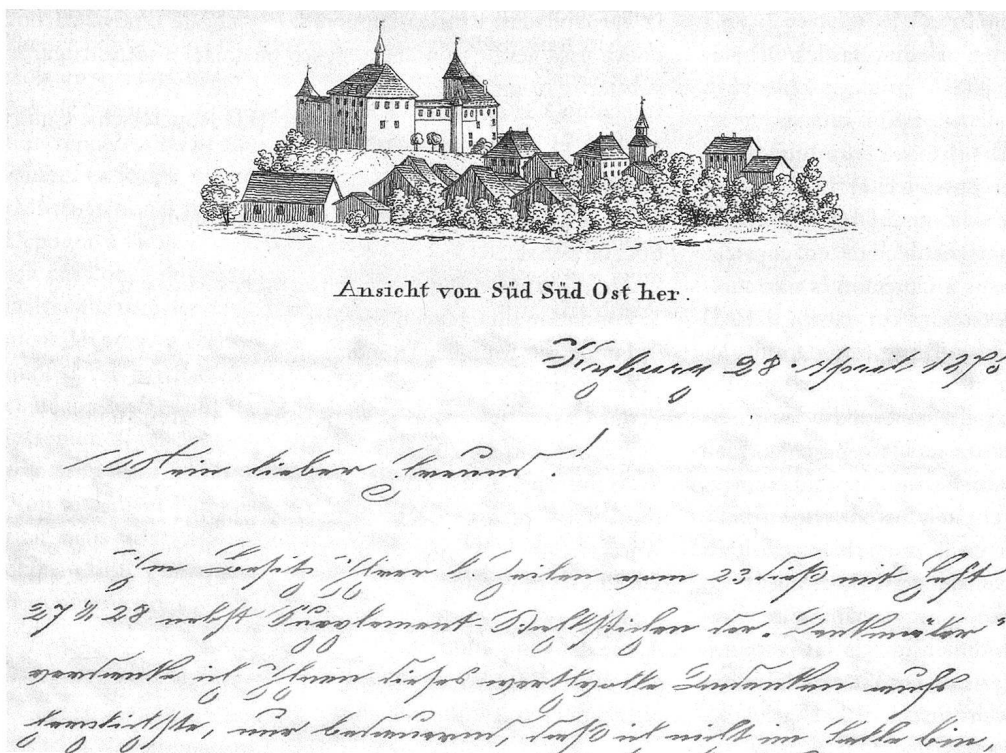 Ansicht von Süd Süd Ost her.
Kyburg 28. April 1873
Mein lieber Freund!
Im Besitz Ihrer l. Zeilen vom 23 dieß mit Heft
27 & 28 nebst Supplement-Stahlstichen der "Denkmäler"
verdanke ich Ihnen dieses werthvolle Andenken aufs
herzlichste, nur bedauernd, daß ich nicht im Falle bin,